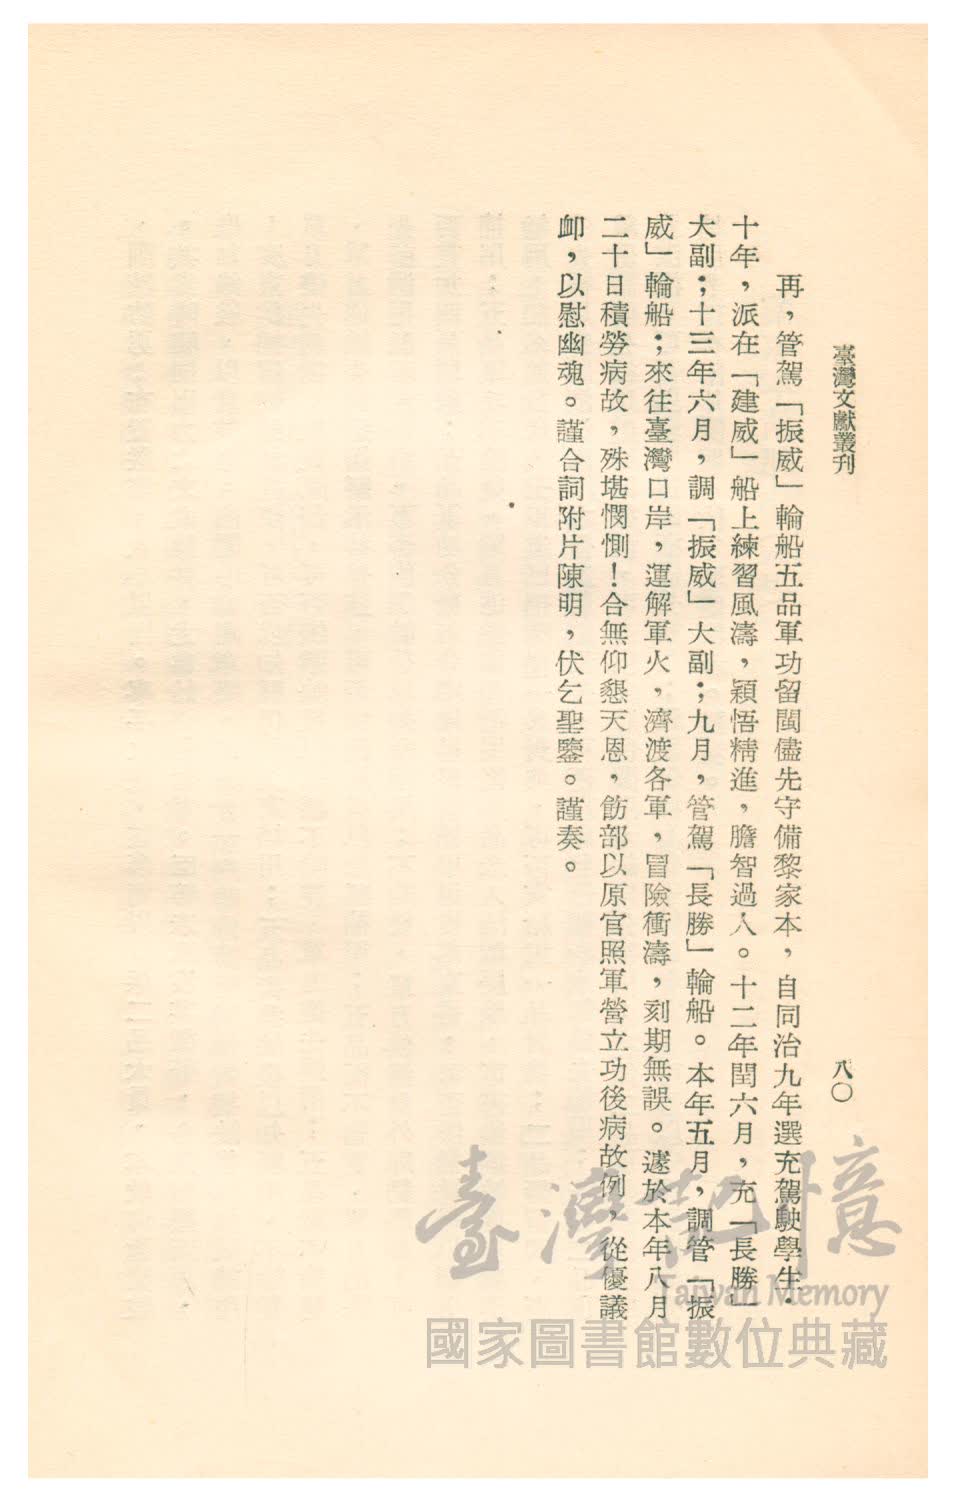 臺灣文獻叢刊
八〇
再，管駕「振威」輪船五品軍功留閩儘先守備黎家本，自同治九年選充駕駛學生．
十年，派在「建威」船上練習風濤，穎悟精進，膽智過人。十二年閏六月，充「長勝」
大副；十三年六月，調「振威」大副；九月，管駕「長勝」輪船。本年五月，調管「振
威」輪船；來往臺灣口岸，運解軍火，濟渡各軍，冒險衝濤，刻期無誤。遽於本年八月
二十日積勞病故，殊堪憫惻！合無仰懇天恩，飭部以原官照軍營立功後病故例，從優議
卹，以慰幽魂。謹合詞附片陳明，伏乞聖鑒。謹奏。
臺灣記憶
Taiwan Memory
國家圖書館數位典藏